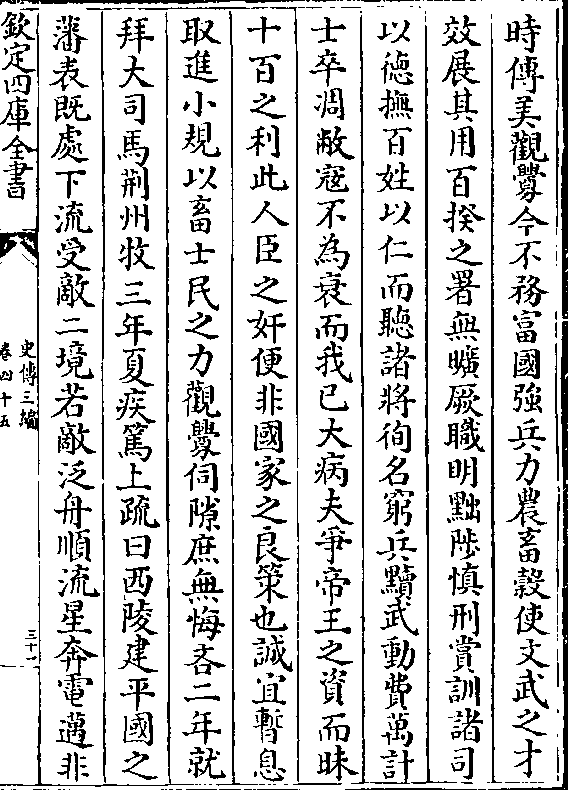 時傳美觀釁今不務富國強兵力農畜穀使文武之才
效展其用百揆之署無曠厥職明黜陟慎刑賞訓諸司
以德撫百姓以仁而聽諸將徇名窮兵黷武動費萬計
士卒凋敝寇不為衰而我已大病夫爭帝王之資而昧
十百之利此人臣之奸便非國家之良策也誠宜暫息
取進小規以畜士民之力觀釁伺隙庶無悔吝二年就
拜大司馬荆州牧三年夏疾篤上疏曰西陵建平國之
藩表既處下流受敵二境若敵泛舟順流星奔電邁非
欽定四庫全書
史傳三編
卷四十五
三十一